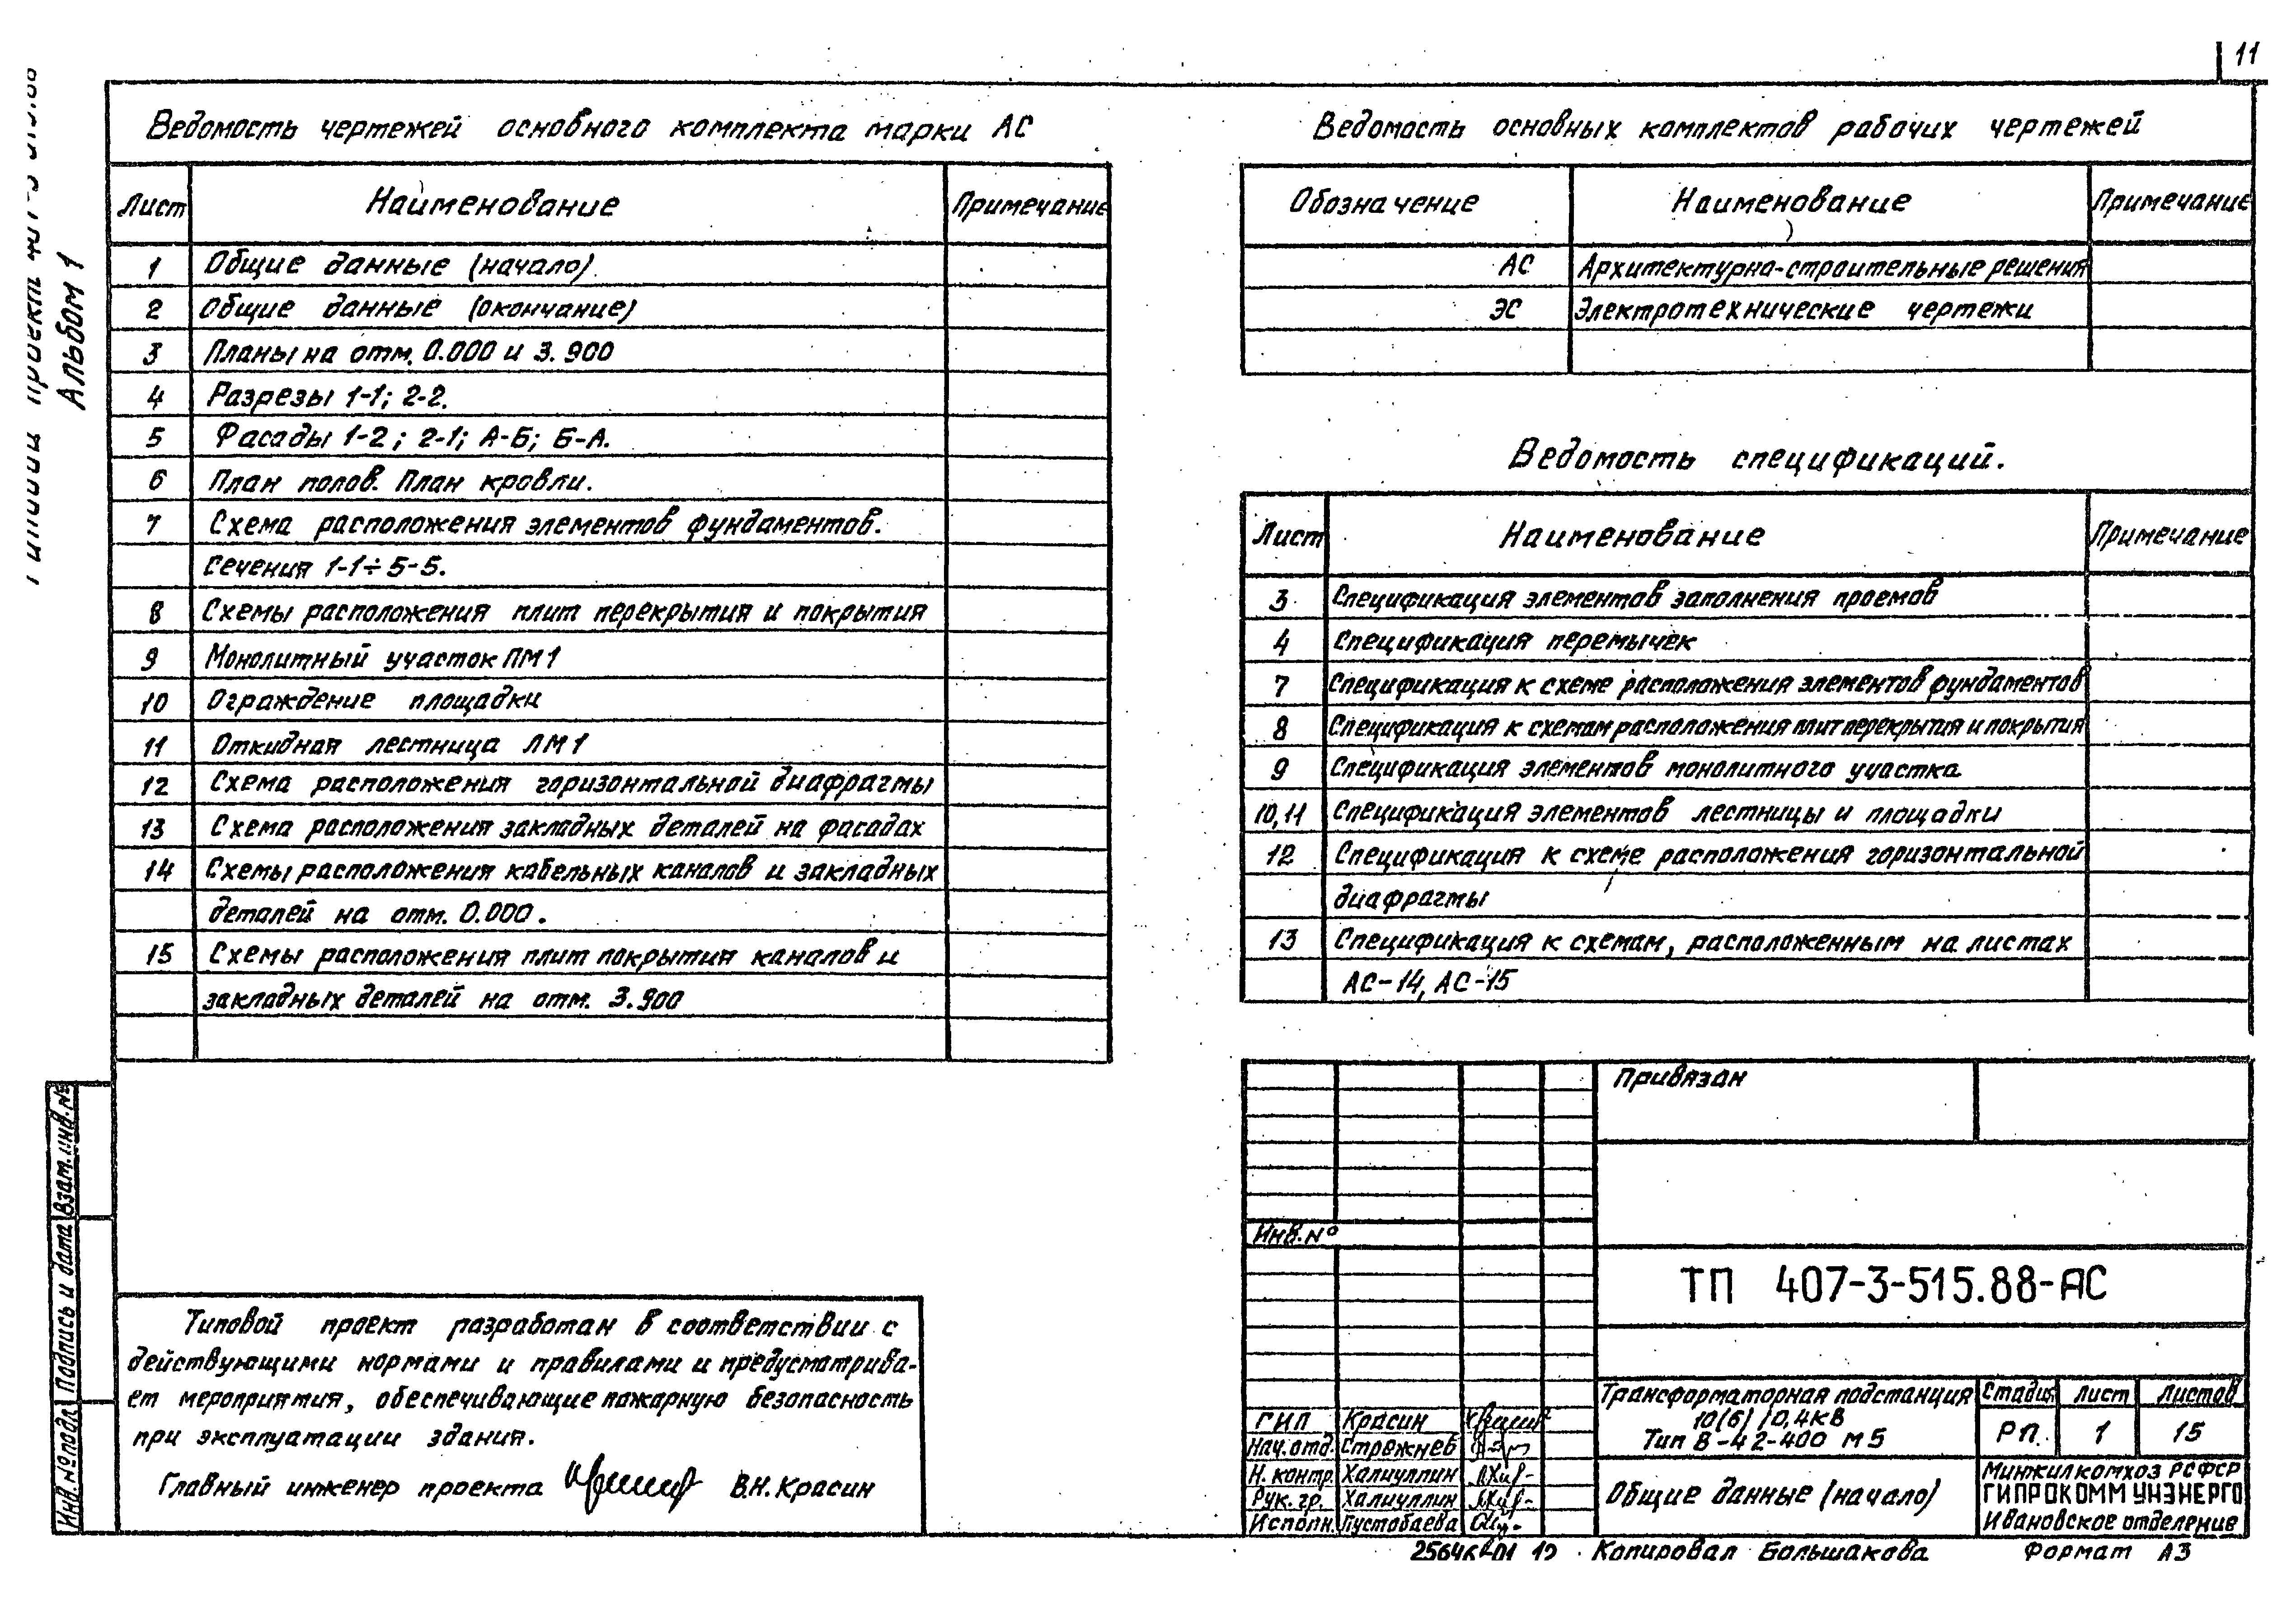 11
Альбом 1
Ведомость чертежей основного комплекта марки АС
Лист Наименование Примечание
1 Общие данные (начало)
2 Общие данные (окончание)
3 Планы на отм. 0.000 и 3.900
4 Разрезы 1-1; 2-2.
5 Фасады 1-2; 2-1; А-Б; Б-А.
6 План полов. План кровли.
7 Схема расположения элементов фундаментов.
Сечения 1-1÷5-5.
8 Схемы расположения плит перекрытия и покрытия
9 Монолитный участок ПМ1
10 Ограждение площадки
11 Откидная лестница ЛМ1
12 Схема расположения горизонтальной диафрагмы
13 Схема расположения закладных деталей на фасадах
14 Схемы расположения кабельных каналов и закладных
деталей на отм. 0.000.
15 Схемы расположения плит покрытия каналов и
закладных деталей на отм. 3.900
Ведомость основных комплектов рабочих чертежей
Обозначение Наименование Примечание
АС Архитектурно-строительные решения
ЭС Электротехнические чертежи
Ведомость спецификаций.
Лист Наименование Примечание
3 Спецификация элементов заполнения проемов
4 Спецификация перемычек
7 Спецификация к схеме расположения элементов фундаментов
8 Спецификация к схемам расположения плит перекрытия и покрытия
9 Спецификация элементов монолитного участка
10,11 Спецификация элементов лестницы и площадки
12 Спецификация к схеме расположения горизонтальной
диафрагмы
13 Спецификация к схемам, расположенным на листах
АС-14, АС-15
Типовой проект разработан в соответствии с
действующими нормами и правилами и предусматрива-
ет мероприятия, обеспечивающие пожарную безопасность
при эксплуатации здания.
Главный инженер проекта В.Н. Красин
Инв.№подл. Подпись и дата Взам.инв.№
Привязан
Инв.№
ТП 407-3-515.88-АС
ГИП Красин
Нач.отд. Стрежнев
Н. контр. Халиуллин
Рук. гр. Халиуллин
Исполн. Пустобаева
Трансформаторная подстанция
10(6)/0,4кВ
Тип В-42-400 М5
Стадия Лист Листов
РП. 1 15
Общие данные (начало)
Минжилкомхоз РСФСР
ГИПРОКОММУНЭНЕРГО
Ивановское отделение
Копировал Большакова Формат А3